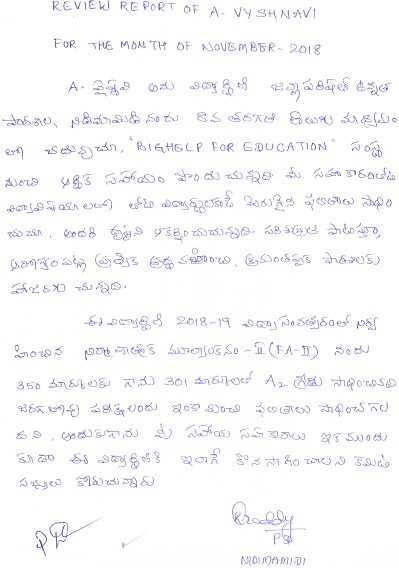 REVIEW REPORT OF A. VYSHNAVI
FOR THE MONTH OF NOVEMBER-2018
A. వైష్ణవి అను విద్యార్థిని జిల్లాపరిషత్ ఉన్నత
పాఠశాల, నిడిమామిడి నందు 8వ తరగతి తెలుగు మాధ్యమం
లో చదువుచూ, "BIGHELP FOR EDUCATION" సంస్థ
నుంచి ఆర్థిక సహాయం పొందుచున్నది. మీ సహకారంతో
విద్యావిషయాలలో తోటి విద్యార్థులకంటే మెరుగైన ఫలితాలు సాధిం
చుచు, అందరి దృష్టిని ఆకర్షించుచున్నది. పరిశుభ్రత పాటిస్తూ,
ఆరోగ్యంపట్ల ప్రత్యేక శ్రద్ధ వహించి, క్రమంతప్పక పాఠశాలకు
హాజరగు చున్నది.
ఈ విద్యార్థిని 2018-19 విద్యా సంవత్సరంలో నిర్వ
హించిన నిర్మాణాత్మక మూల్యాంకనం-II (FA-II) నందు
350 మార్కులకు గాను 301 మార్కులతో A2 గ్రేడు సాధించినది
జరగబోవు పరీక్షలందు ఇంకా మంచి ఫలితాలు సాధించగల
దని, అందుకుగాను మీ సహాయ సహకారాలు ఇకముందు
కూడా ఈ విద్యార్థినికి ఇలాగే కొనసాగించాలని కమిటి
సభ్యులు కోరుచున్నారు
Reddy
NIDIMAMIDI